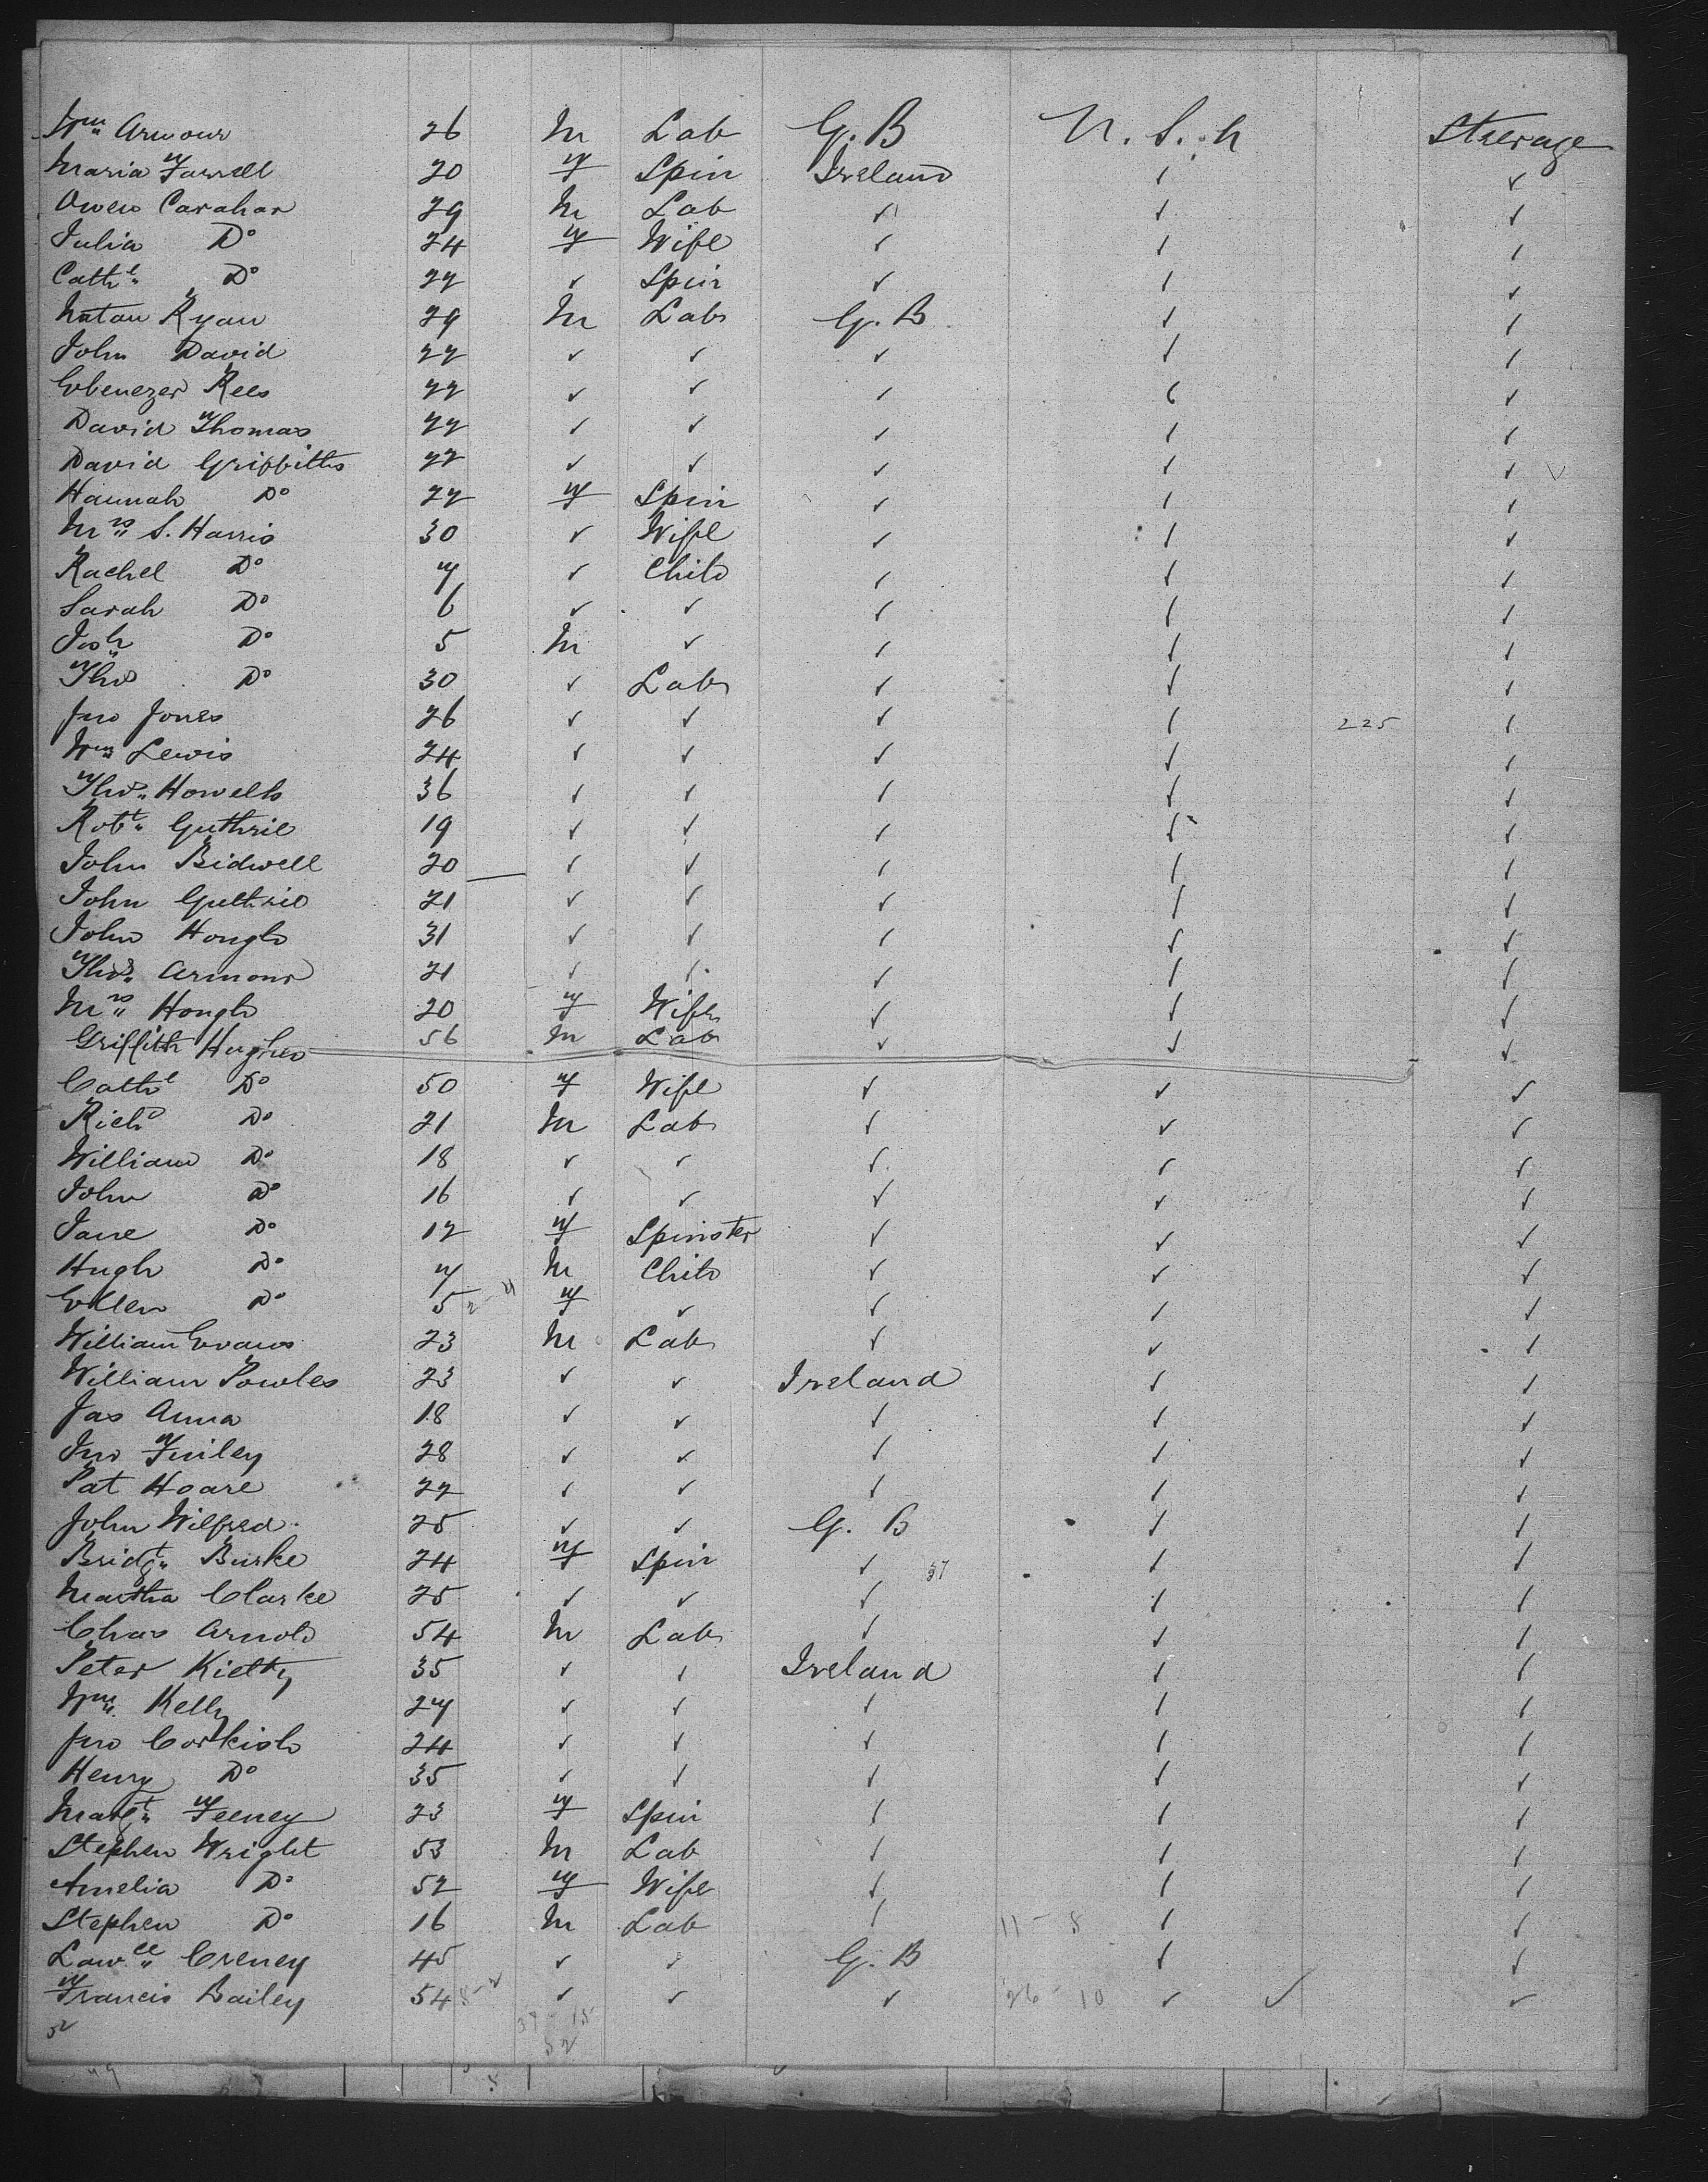 Wm Armour 26 M Lab G.B U.S.A Steerage
Maria Farrell 20 F Spin Ireland ✓ ✓
Owen Carahar 29 M Lab ✓ ✓ ✓
Julia Do 24 F Wife ✓ ✓ ✓
Cathe Do 22 ✓ Spin ✓ ✓ ✓
Ryan 29 M Lab G.B ✓ ✓
John David 22 ✓ ✓ ✓ ✓ ✓
Ebenezer Rees 22 ✓ ✓ ✓ ✓ ✓
David Thomas 22 ✓ ✓ ✓ ✓ ✓
David Griffiths 22 ✓ ✓ ✓ ✓ ✓
Hannah Do 22 F Spin ✓ ✓ ✓
Mrs S. Harris 30 ✓ Wife ✓ ✓ ✓
Rachel Do 7 ✓ Child ✓ ✓ ✓
Sarah Do 6 ✓ ✓ ✓ ✓ ✓
Josh Do 5 M ✓ ✓ ✓ ✓
Thos Do 30 ✓ Lab ✓ ✓ ✓
Jno Jones 26 ✓ ✓ ✓ ✓ 225 ✓
Wm Lewis 24 ✓ ✓ ✓ ✓ ✓
Thos Howells 36 ✓ ✓ ✓ ✓ ✓
Robt Guthrie 19 ✓ ✓ ✓ ✓ ✓
John Bidwell 20 ✓ ✓ ✓ ✓ ✓
John Guthrie 21 ✓ ✓ ✓ ✓ ✓
John Hough 31 ✓ ✓ ✓ ✓ ✓
Thos Armour 21 ✓ ✓ ✓ ✓ ✓
Mrs Hough 20 F Wife ✓ ✓ ✓
Griffith Hughes 56 M Lab ✓ ✓ ✓
Cathe Do 50 F Wife ✓ ✓ ✓
Richd Do 21 M Lab ✓ ✓ ✓
William Do 18 ✓ ✓ ✓ ✓ ✓
John Do 16 ✓ ✓ ✓ ✓ ✓
Jane Do 12 F Spinster ✓ ✓ ✓
Hugh Do 7 M Child ✓ ✓ ✓
Ellen Do 5 F ✓ ✓ ✓ ✓
William Evans 23 M Lab ✓ ✓ ✓
William Powles 23 ✓ ✓ Ireland ✓ ✓
Jas Anna 18 ✓ ✓ ✓ ✓ ✓
Jno Finley 28 ✓ ✓ ✓ ✓ ✓
Pat Hoare 22 ✓ ✓ ✓ ✓ ✓
John Wilfred 25 ✓ ✓ G. B ✓ ✓
Bridgt Burke 24 F Spin ✓ 37 ✓ ✓
Martha Clarke 25 ✓ ✓ ✓ ✓ ✓
Chas Arnold 54 M Lab ✓ ✓ ✓
Peter Kielty 35 ✓ ✓ Ireland ✓ ✓
Wm Kelly 27 ✓ ✓ ✓ ✓ ✓
Jno Corkish 24 ✓ ✓ ✓ ✓ ✓
Henry Do 35 ✓ ✓ ✓ ✓ ✓
Margt Feeney 23 F Spin ✓ ✓ ✓
Stephen Wright 53 M Lab ✓ ✓ ✓
Amelia Do 52 F Wife ✓ ✓ ✓
Stephen Do 16 M Lab ✓ 11 - 8 ✓ ✓
Lawce Creney 45 ✓ ✓ G. B ✓ ✓
Francis Bailey 54 8-2 ✓ ✓ ✓ 26 - 10 ✓ ✓ ✓
52 37 - 15
52